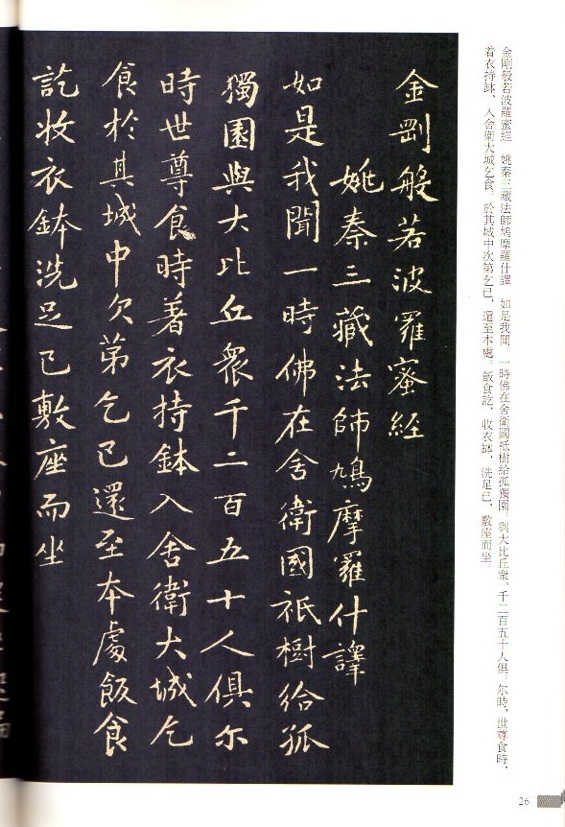 金剛般若波羅蜜經 姚秦三藏法師鳩摩羅什譯 如是我聞。一時佛在舍衛國祇樹給孤獨園。與大比丘衆、千二百五十人俱。尔時、世尊食時、
着衣持鉢、入舍衛大城乞食。於其城中次第乞已、還至本處。飯食訖、收衣鉢、洗足已、敷座而坐。
金剛般若波羅蜜經
姚秦三藏法師鳩摩羅什譯
如是我聞一時佛在舍衛國祇樹給孤
獨園與大比丘衆千二百五十人俱尔
時世尊食時著衣持鉢入舍衛大城乞
食於其城中次第乞已還至本處飯食
訖收衣鉢洗足已敷座而坐
26